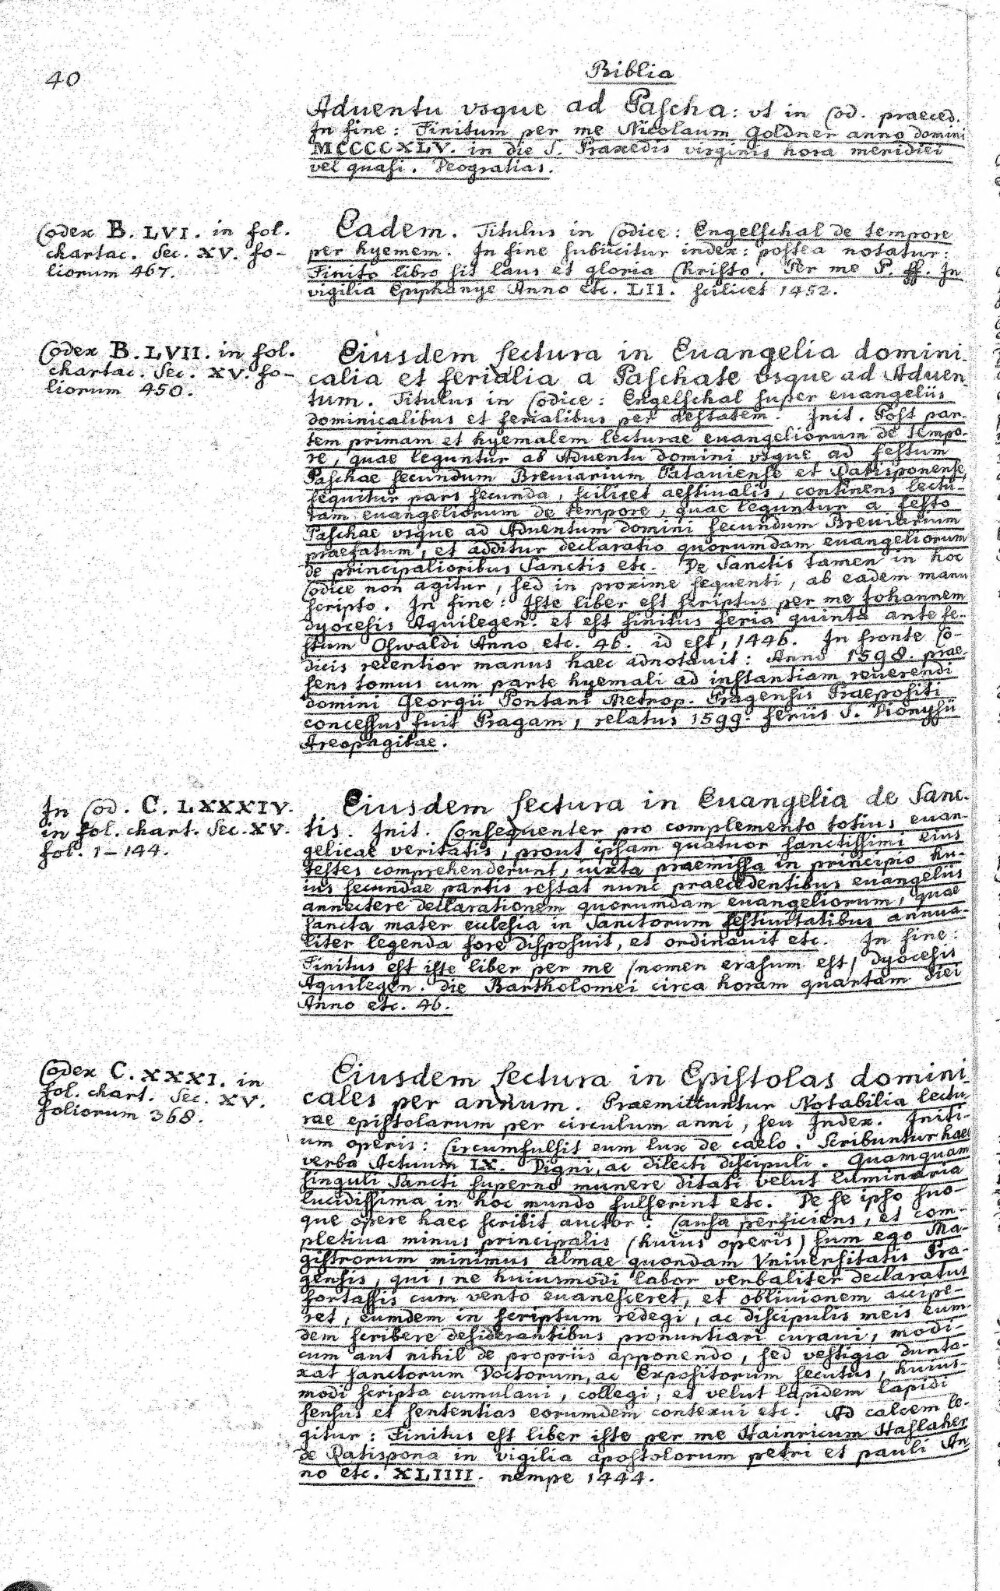 40
Biblia
Adventu vsque ad Paſcha: vt in Cod. praeced.
In fine: Finitum per me Nicolaum Goldner anno domini
MCCCCXLV. in die S. Praxedis virginis hora meridiei
vel quaſi. Deogratias.
Codex B. LVI. in fol.
chartac. Sec. XV. fo-
liorum 467.
Eadem. Titulus in Codice: Engelſchal de tempore
per hyemem. In fine ſubiicitur index: poſtea notatur:
Finito libro ſit laus et gloria Chriſto. Per me P. ff. In
vigilia Epiphanye Anno etc. LII. ſcilicet 1452.
Codex B. LVII. in fol.
chartac. Sec. XV. fo-
liorum 450.
Eiusdem Lectura in Euangelia domini-
calia et ferialia a Paſchate vsque ad Aduen-
tum. Titulus in Codice: Engelſchal ſuper euangeliis
dominicalibus et ferialibus per aeſtatem. Init. Poſt par-
tem primam et hyemalem lecturae euangeliorum de tempo-
re, quae leguntur ab Aduentu domini vsque ad feſtum
Paſchae ſecundum Breuiarium Patauienſe et Ratisponenſe,
ſequitur pars ſecunda, ſcilicet aeſtiualis, continens lectu-
ram euangeliorum de tempore, quae leguntur a feſto
Paſchae vsque ad Aduentum domini ſecundum Breuiarium
praefatum, et additur declaratio quorumdam euangeliorum
de principalioribus Sanctis etc. De Sanctis tamen in hoc
Codice non agitur, ſed in proxime ſequenti, ab eadem manu
ſcripto. In fine: Iſte liber eſt ſcriptus per me Johannem
dyoceſis Aquilegen. et eſt finitus feria quinta ante fe-
ſtum Oſwaldi Anno etc. 46. id eſt, 1446. In fronte Co-
dicis recentior manus haec adnotauit: Anno 1598. prae-
ſens tomus cum parte hyemali ad inſtantiam reuerendi
domini Georgii Pontani Metrop. Pragenſis Praepoſiti
conceſſus fuit Pragam, relatus 1599. feriis S. Dionyſii
Areopagitae.
In Cod. C. LXXXIV.
in fol. chart. Sec. XV.
fol. 1-144.
Eiusdem Lectura in Euangelia de Sanc-
tis. Init. Conſequenter pro complemento totius euan-
gelicae veritatis, prout ipſam quatuor ſanctiſſimi eius
teſtes comprehenderunt, iuxta praemiſſa in principio hu-
ius ſecundae partis reſtat nunc praecedentibus euangeliis
annectere declarationem quorumdam euangeliorum, quae
ſancta mater eccleſia in Sanctorum feſtiuitatibus annua-
liter legenda fore diſpoſuit, et ordinauit etc. In fine:
Finitus eſt iſte liber per me (nomen eraſum eſt) dyoceſis
Aquilegen. die Bartholomei circa horam quartam diei
Anno etc. 46.
Codex C. XXXI. in
fol. chart. Sec. XV.
foliorum 368.
Eiusdem Lectura in Epiſtolas domini-
cales per annum. Praemittuntur Notabilia lectu-
rae epiſtolarum per circulum anni, ſeu Index. Initi-
um operis: Circumfulſit eum lux de caelo. Scribuntur haec
verba Actuum IX. Digni, ac dilecti diſcipuli. Quamquam
ſinguli Sancti ſuperno munere ditati velut luminaria
lucidiſſima in hoc mundo fulſerint etc. De ſe ipſo ſuo-
que opere haec ſcribit auctor: Cauſa perficiens, et com-
pletiua minus principalis (huius operis) ſum ego Ma-
giſtrorum minimus almae quondam Vniuerſitatis Pra-
genſis, qui, ne huiusmodi labor verbaliter declaratus
fortaſſis cum vento euaneſceret, et obliuionem accipe-
ret, eumdem in ſcriptum redegi, ac diſcipulis meis eum-
dem ſcribere deſiderantibus pronuntiari curaui, modi-
cum aut nihil de propriis apponendo, ſed veſtigia dunta-
xat ſanctorum Doctorum, ac Expoſitorum ſecutus, huius-
modi ſcripta cumulaui, collegi, et velut lapidem lapidi
ſenſus et ſententias eorumdem contexui etc. Ad calcem le-
gitur: Finitus eſt liber iſte per me Hainricum Haſlaher
de Ratispona in vigilia apoſtolorum petri et pauli An-
no etc. XLIIII. nempe 1444.